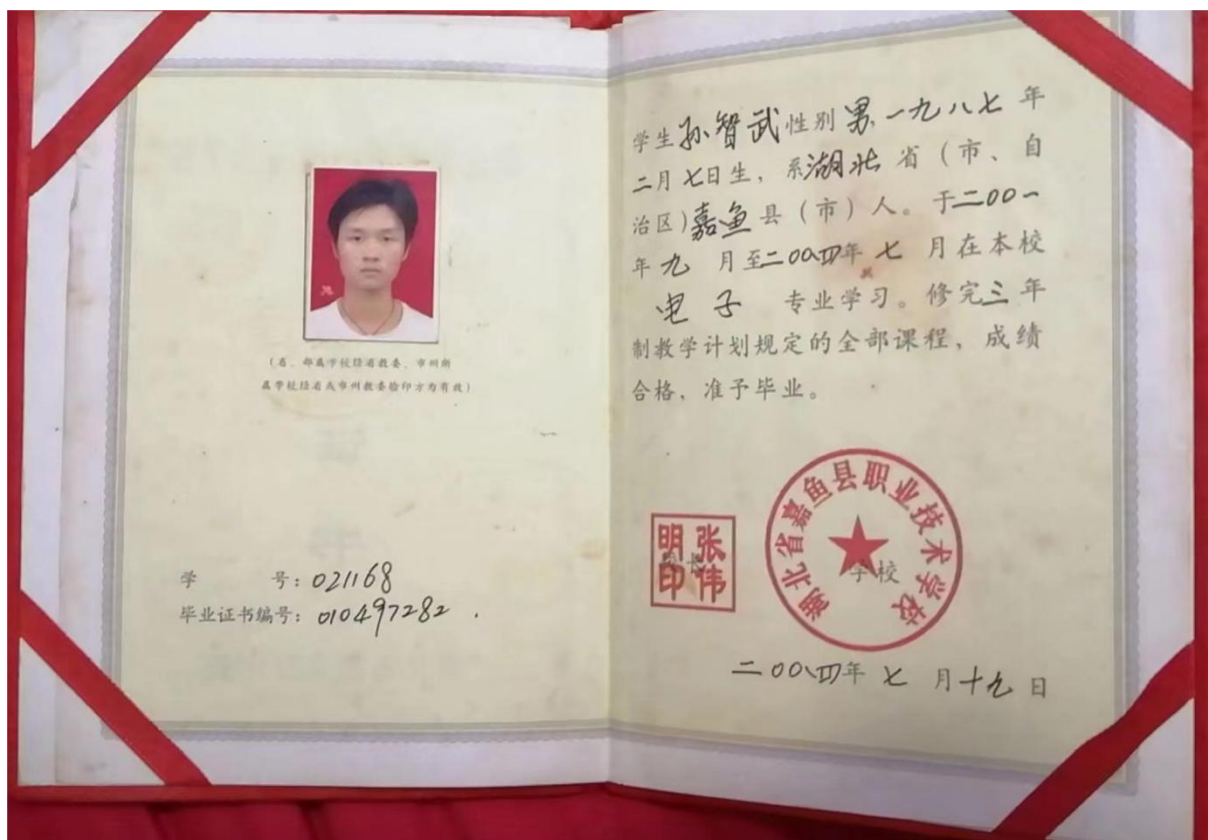 (省、部属学校经省教委、市州所
属学校经省或市州教委验印方为有效)
学 号：021168
毕业证书编号：010497282 .
学生孙智武性别男,一九八七年
二月七日生，系湖北省（市、自
治区）嘉鱼县（市）人。于二00一
年九月至二00四年七月在本校
电子 专业学习。修完三年
制教学计划规定的全部课程，成绩
合格，准予毕业。
张伟明印
校长
湖北省嘉鱼县职业技术学校
学校
二00四年七月十九日